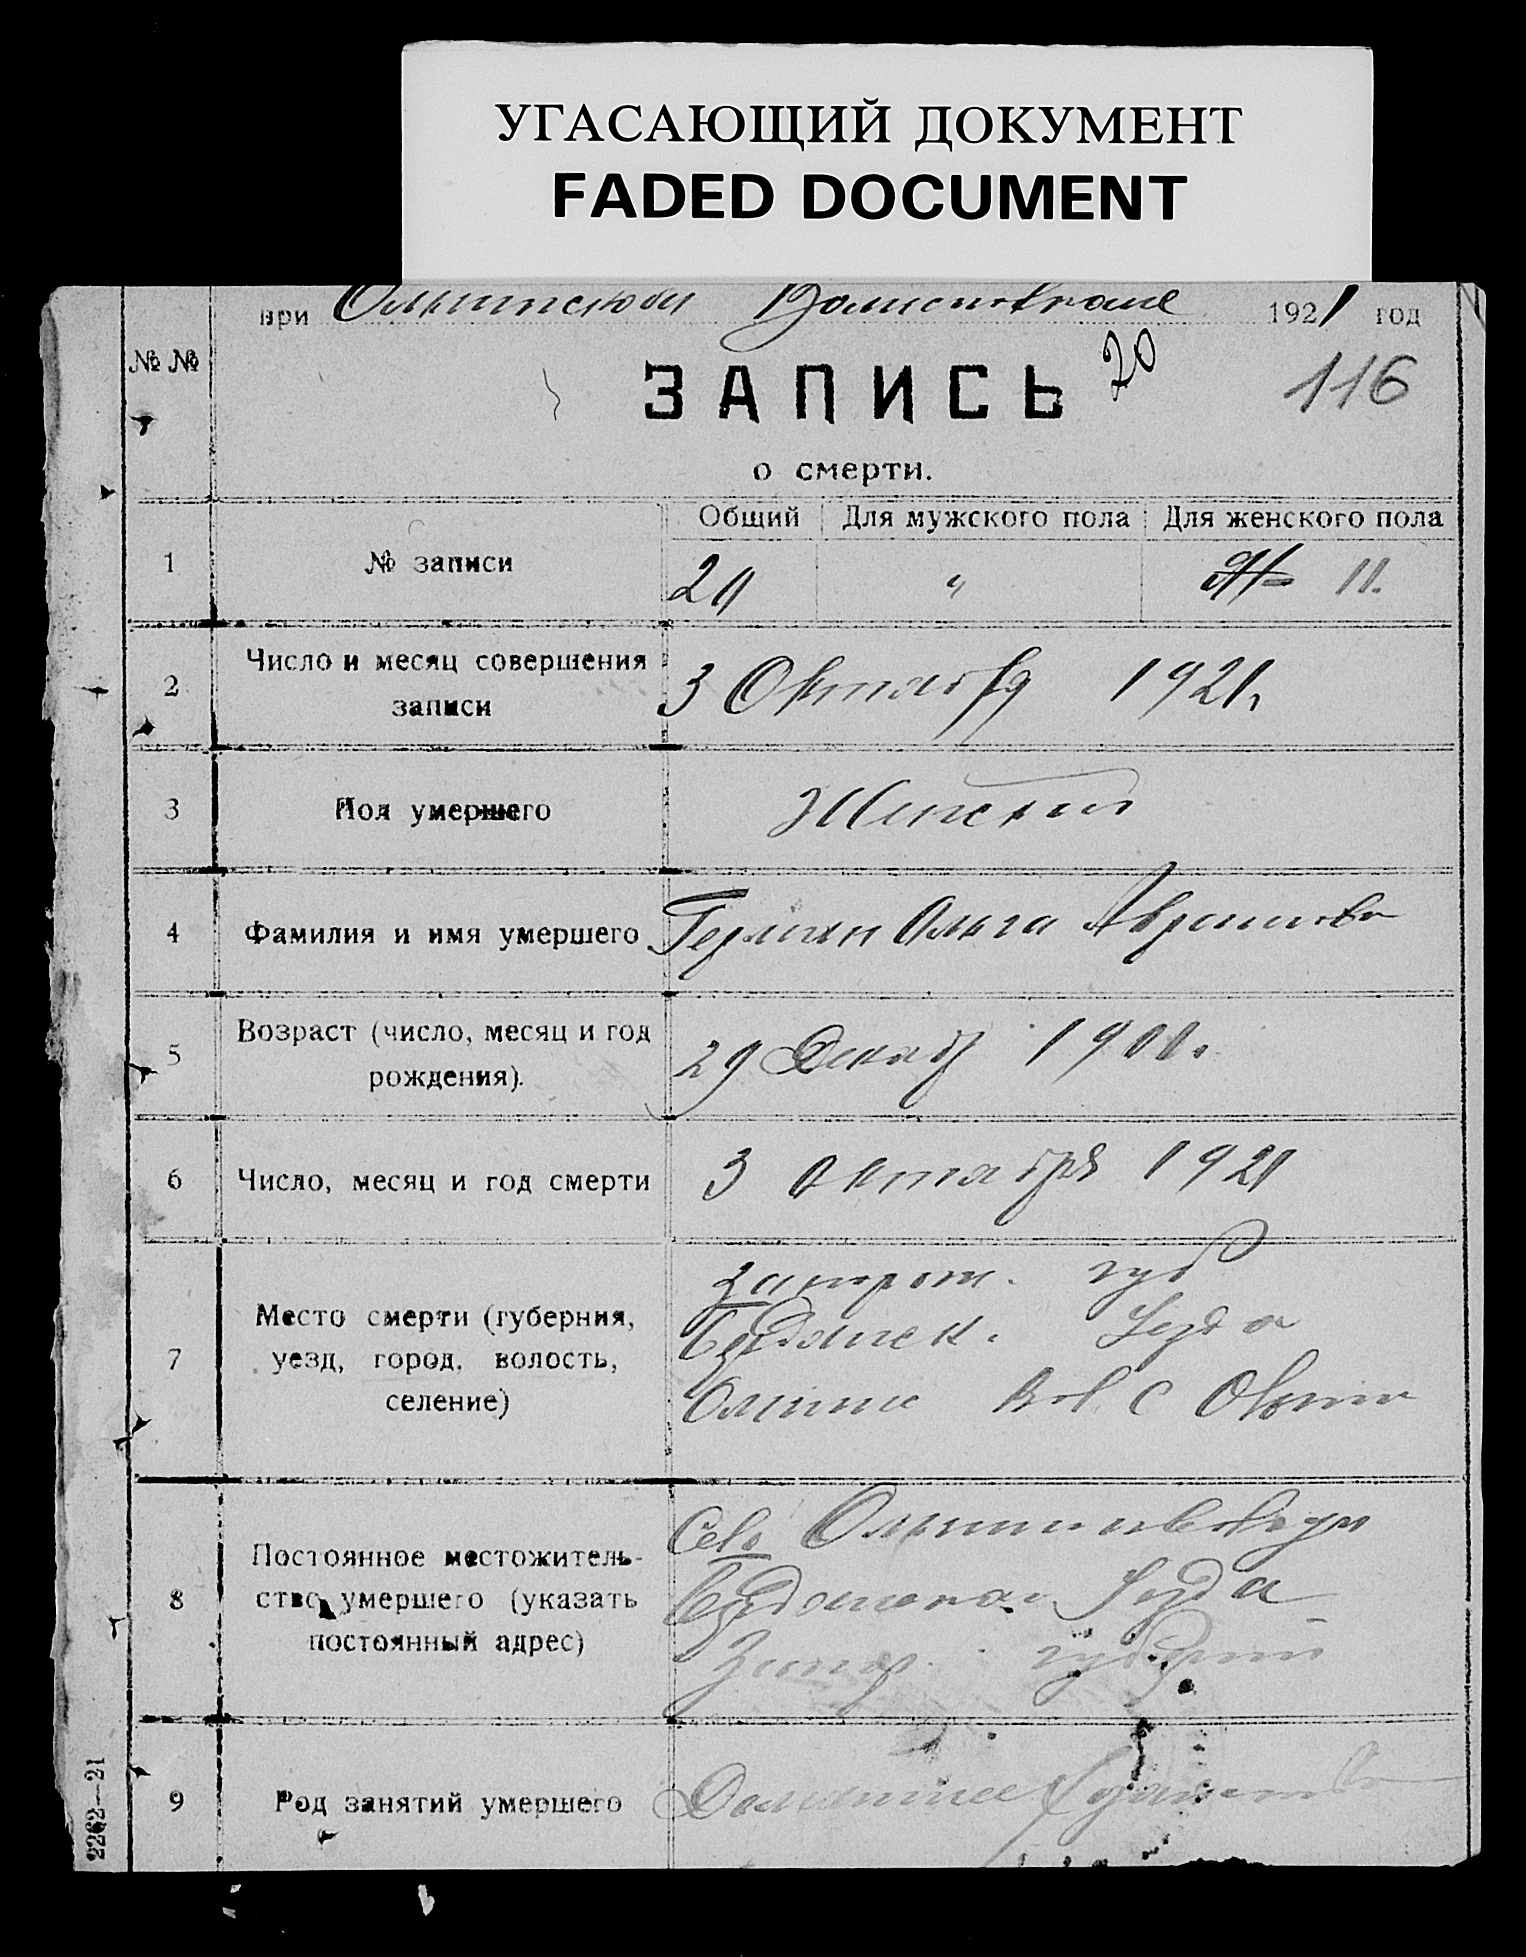 УГАСАЮЩИЙ ДОКУМЕНТ
FADED DOCUMENT
при 1921 год
№ №
ЗАПИСЬ 20
116
о смерти.
Общий Для мужского пола Для женского пола
1 № записи " 11.
2 Число и месяц совершения
записи
3 Октября 1921г
3 Пол умершего Женский
4 Фамилия и имя умершего Герман Ольга Абрамовна
5 Возраст (число, месяц и год
рождения).
29 Декаб
6 Число, месяц и год смерти 3 октября 1921
7 Место смерти (губерния,
уезд, город, волость,
селение)
запорож. губ
Бердянск. уезда
вол с
8 Постоянное местожитель-
ство умершего (указать
постоянный адрес)
Село
Бердянского уезда
Запор. губернии
9 Род занятий умершего Домашнее
2262—21